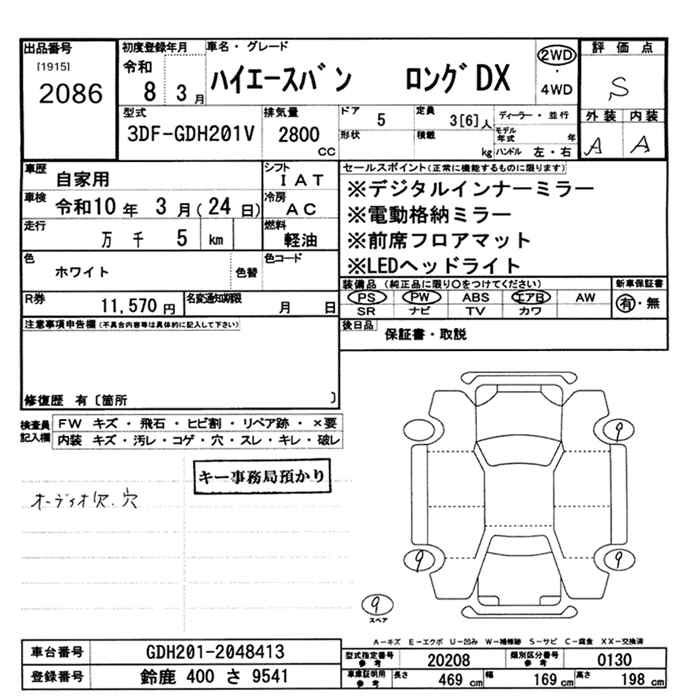 出品番号 初度登録年月 車名・グレード 評価点
[1915] 令和 ハイエースバン ロングDX 2WD ・ 4WD S
2086 8 3月
外装 内装
型式 排気量 ドア 5 定員 3[6]人 ディーラー・並行 A A
3DF-GDH201V 2800cc 形状 積載 kg モデル年式 年
ハンドル 左・右
車歴 自家用 シフト IAT セールスポイント(正常に機能するものに限ります)
車検 令和10年 3月(24日) 冷房 AC ※デジタルインナーミラー
※電動格納ミラー
走行 万 千 5 km 燃料 軽油 ※前席フロアマット
色 ホワイト 色替 色コード ※LEDヘッドライト
装備品(純正品に限り○をつけてください) 新車保証書
R券 11,570円 名変通知期限 月 日 PS PW ABS エアB AW 有・無
SR ナビ TV カワ
注意事項申告欄(不具合内容等は具体的に記入して下さい) 後日品 保証書・取説
修復歴 有〔箇所 〕
検査員記入欄 FW キズ・飛石・ヒビ割・リペア跡・×要
内装 キズ・汚レ・コゲ・穴・スレ・キレ・破レ
9
キー事務局預かり
オーディオ欠.穴
9 9
9
スペア
A-キズ E-エクボ U-凹み W-補修跡 S-サビ C-腐食 XX-交換済
車台番号 GDH201-2048413 型式指定番号参考 20208 類別区分番号参考 0130
登録番号 鈴鹿 400 さ 9541 車庫証明用参考 長さ 469cm 幅 169cm 高さ 198cm